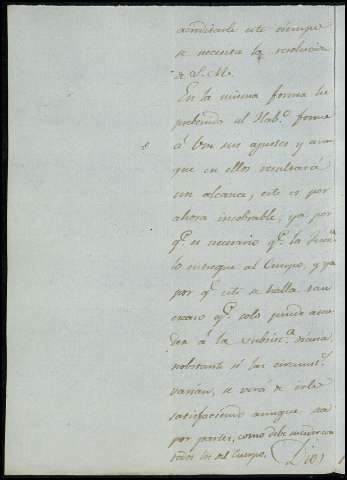 acreditarle este tiempo
se necesita la resolucion
de S. M.
En la misma forma he
pretendido al Hab.º forme
á Vm sus ajustes y aun
que en ellos resultará
un alcance, este es por
ahora incobrable; ya por
q.e es necesario q.e la
lo entregue al Cuerpo, y ya
por q.e este se halla tan
escaso q.e solo puede
á la subsist.a diaria,
nobstante si las circunst.s
varían, se verá de irle
satisfaciendo aunque sea
por partes, como debe
todos los del Cuerpo. Dios